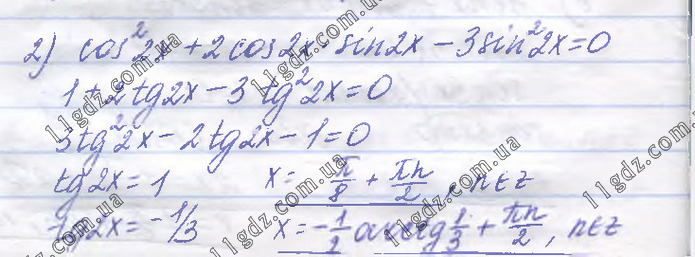 2) cos²2x + 2cos2x · sin2x − 3sin²2x = 0
1 + 2tg2x − 3tg²2x = 0
3tg²2x − 2tg2x − 1 = 0
tg2x = 1 x = π/8 + πn/2, n∈z
tg2x = −1/3 x = −1/2 arctg 1/3 + πn/2, n∈z
11gdz.com.ua
11gdz.com.ua
11gdz.com.ua
11gdz.com.ua
11gdz.com.ua